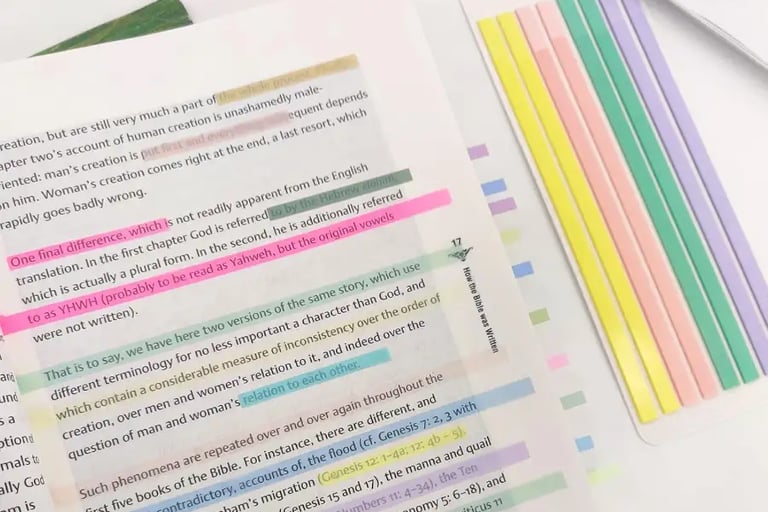 reation, but are still very much a part of the whole
apter two's account of human creation is unashamedly male-
iented: man's creation is put first and everything equent depends
on him. Woman's creation comes right at the end, a last resort, which
rapidly goes badly wrong.
One final difference, which is not readily apparent from the English
translation. In the first chapter God is referred to by the Hebrew elohim,
which is actually a plural form. In the second, he is additionally referred
to as YHWH (probably to be read as Yahweh, but the original vowels
were not written).
That is to say, we have here two versions of the same story, which use
different terminology for no less important a character than God, and
which contain a considerable measure of inconsistency over the order of
creation, over men and women's relation to it, and indeed over the
question of man and woman's relation to each other.
Such phenomena are repeated over and over again throughout the
first five books of the Bible. For instance, there are different, and
contradictory, accounts, of the flood (cf. Genesis 7: 2, 3 with
ham's migration (Genesis 12: 1-4a; 12: 4b – 5),
(Genesis 15 and 17), the manna and quail
Numbers 11: 4–34), the Ten
onomy 5: 6–18), and
viticus 11
17
How the Bible was Written
und
s a
ption
mals to
ally God
m is